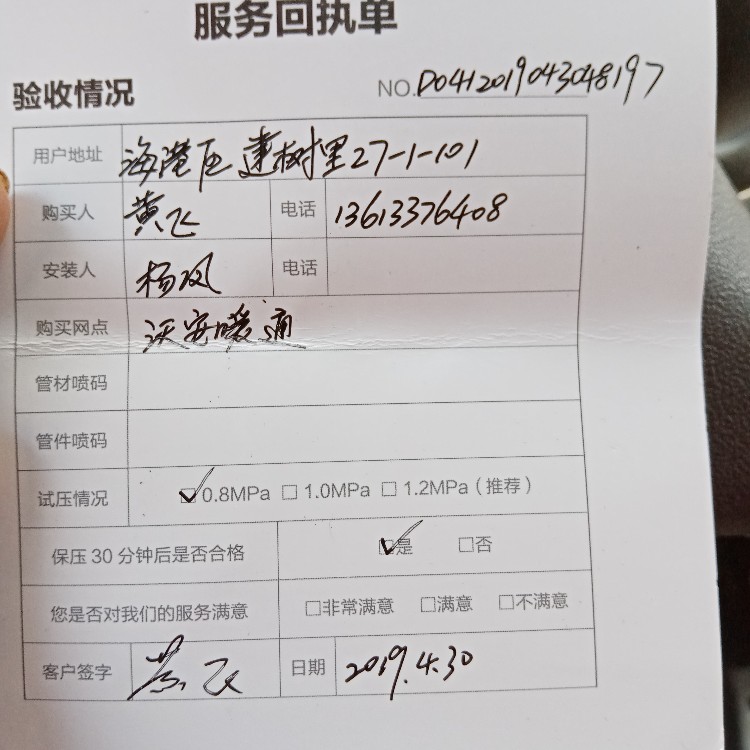 服务回执单
验收情况 NO.D0412019043048197
用户地址 海港区建树里27-1-101
购买人 黄飞 电话 13613376408
安装人 杨凤 电话
购买网点 沃安暖通
管材喷码
管件喷码
试压情况 ☑0.8MPa □1.0MPa □1.2MPa（推荐）
保压30分钟后是否合格 ☑是 □否
您是否对我们的服务满意 □非常满意 □满意 □不满意
客户签字 黄飞 日期 2019.4.30